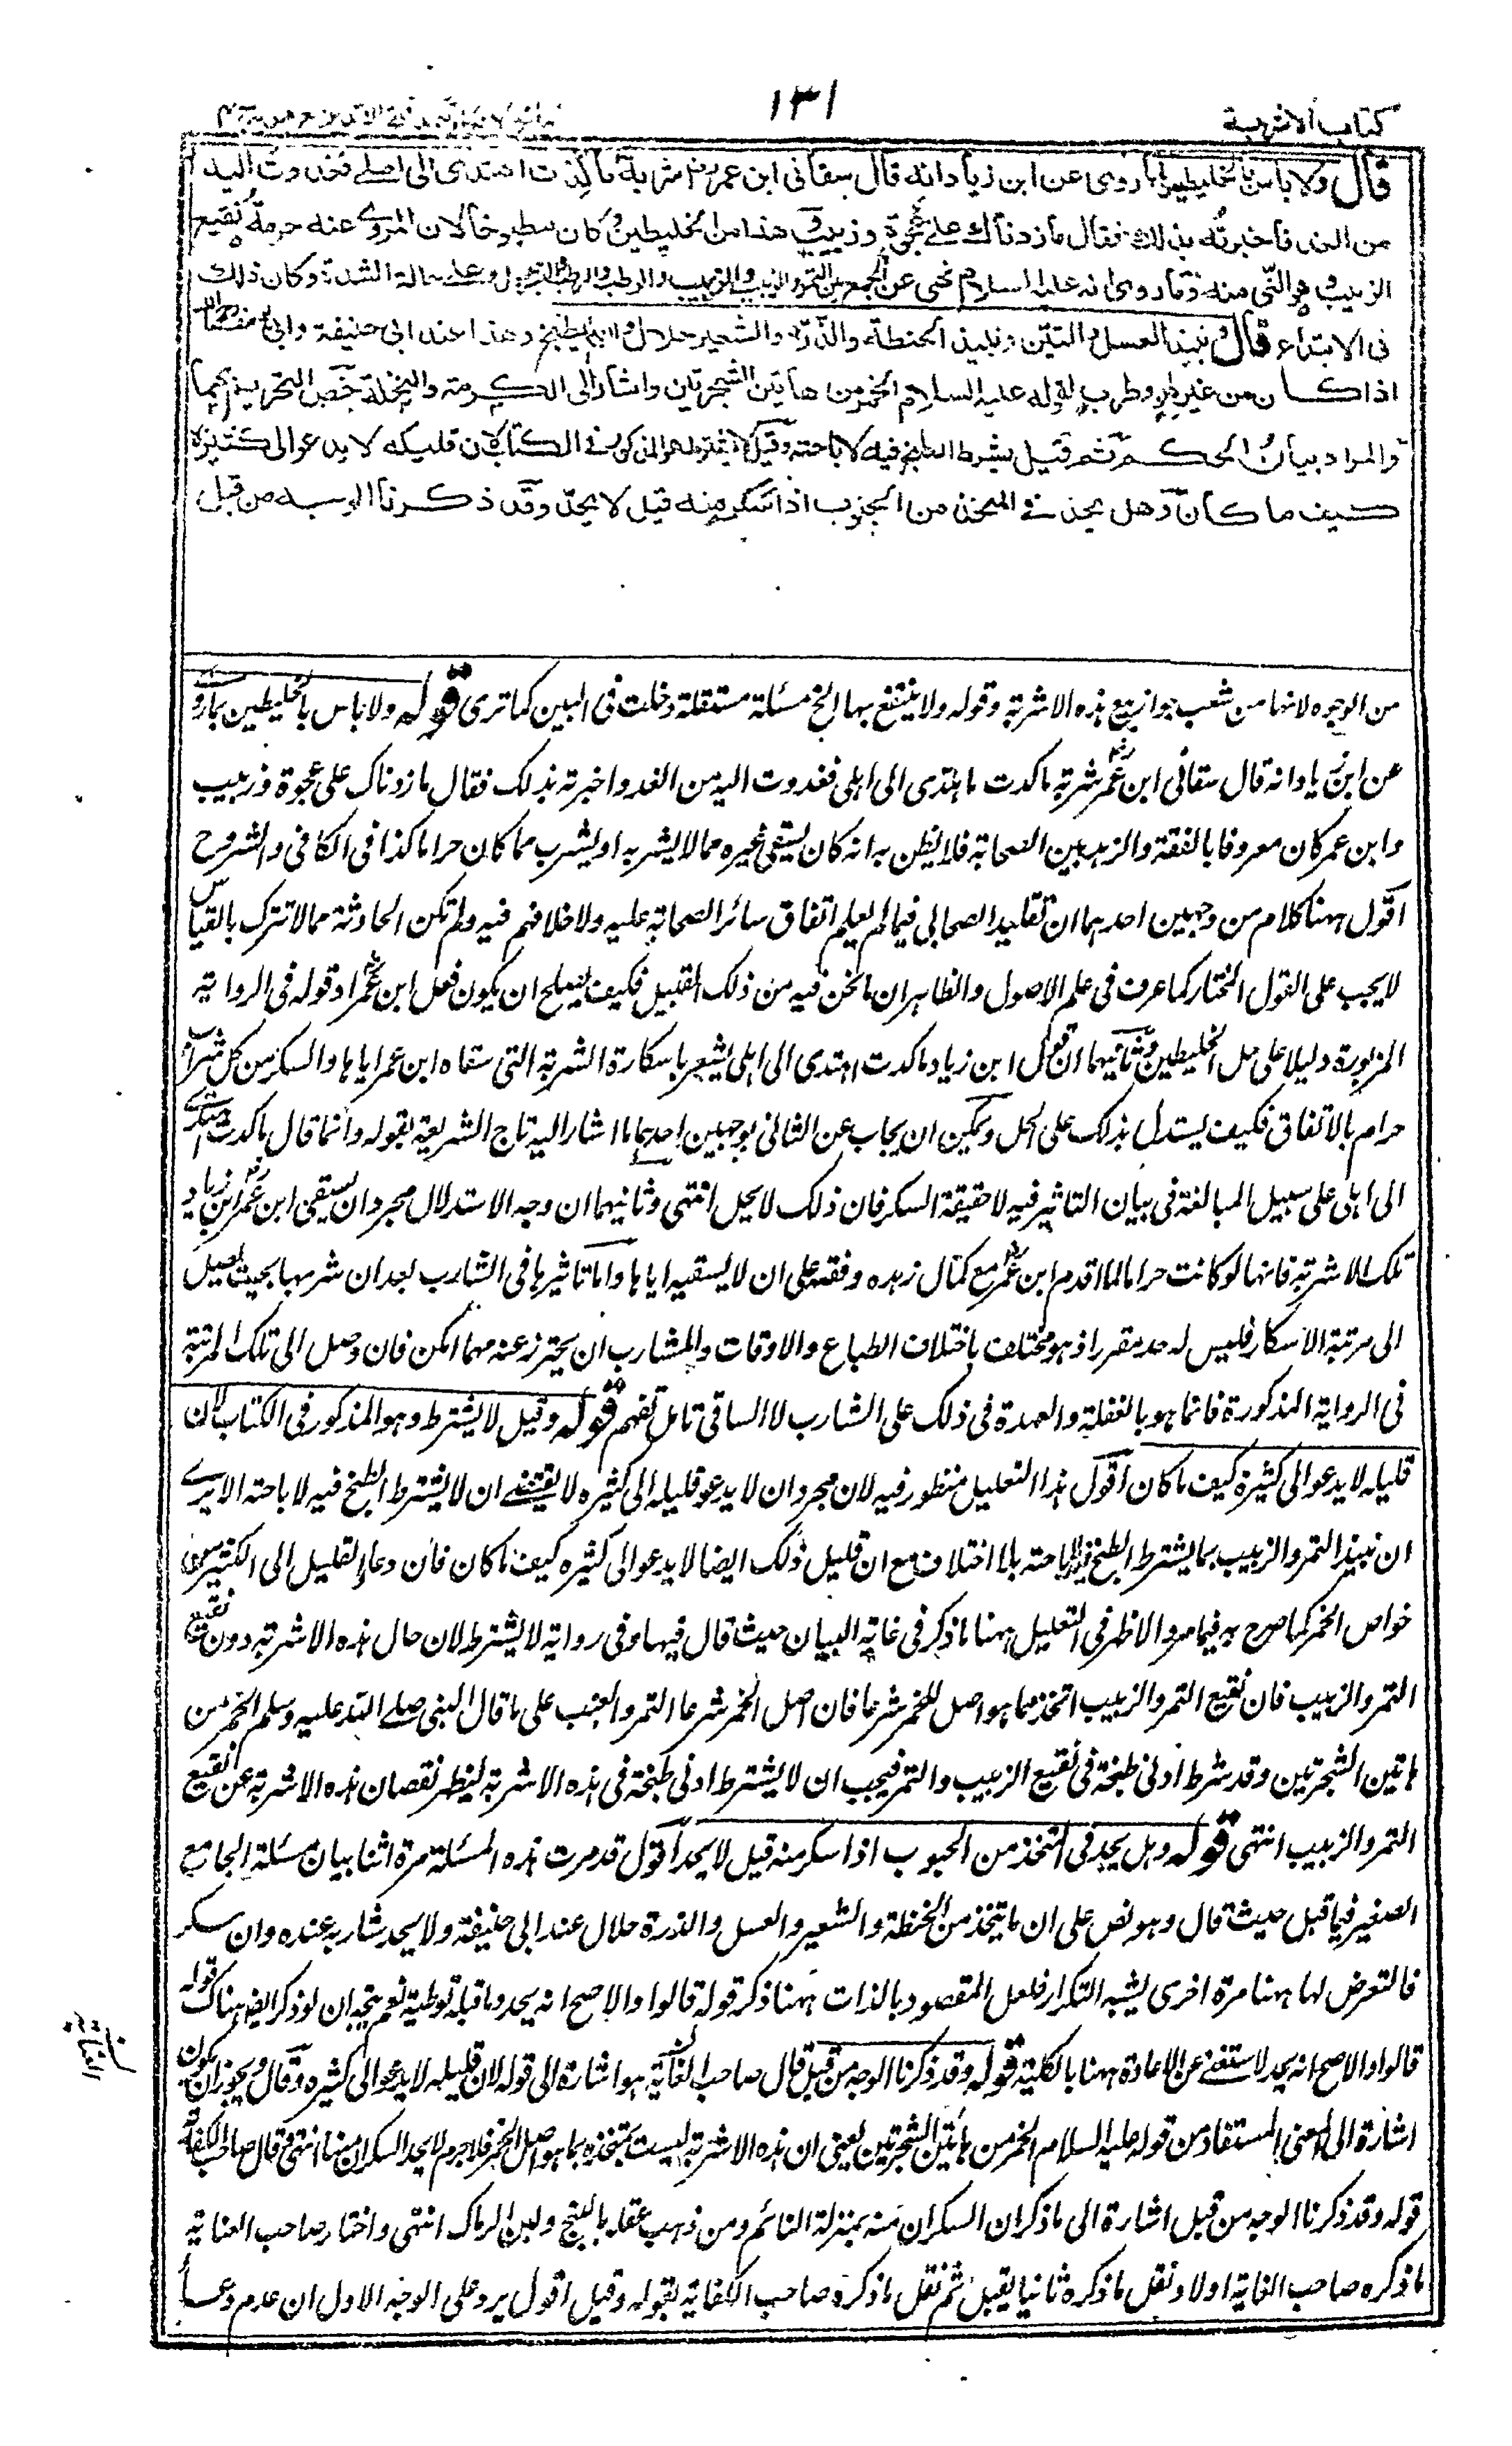 كتاب الاشربة
١٣١
قال ولا باس بالخليطين لما روى عن ابن زياد انه قال سقانى ابن عمر رضـ شربة ما كدت اهتدى الى اهلى فغدوت اليه
من الغد فاخبرته بذلك فقال ما زدناك على عجوة وزبيب وهذا من الخليطين وكان مطبوخا لان المروى عنه حرمة نقيع
الزبيب وهو النى منه وما روى انه عليه السلام نهى عن الجمع بين التمر والزبيب والزبيب والرطب والرطب والبسر محمول على حالة الشدة وكان ذلك
فى الابتداء قال ونبيذ العسل والتين ونبيذ الحنطة والذرة والشعير حلال وان لم يطبخ وهذا عند ابى حنيفة وابى يوسف رحمهما الله
اذا كان من غير لهو وطرب لقوله عليه السلام الخمر من هاتين الشجرتين واشار الى الكرمة والنخلة خص التحريم بهما
والمراد بيان الحكم ثم قيل يشترط الطبخ فيه لاباحته وقيل لا يشترط وهو المذكور فى الكتاب لان قليله لا يدعو الى كثيره
كيف ما كان وهل يحد فى المتخذ من الحبوب اذا سكر منه قيل لا يحد وقد ذكرنا الوجه من قبل
من الوجوه لانها من شعب جواز بيع هذه الاشربة وقوله ولا ينتفع بها الخ مسئلة مستقلة دخلت فى البين كما ترى قوله ولا باس بالخليطين لما روى
عن ابن زياد انه قال سقانى ابن عمر رضـ شربة ما كدت اهتدى الى اهلى فغدوت اليه من الغد واخبرته بذلك فقال ما زدناك على عجوة وزبيب
وابن عمر كان معروفا بالفقه والزهد بين الصحابة فلا يظن به انه كان يسقى غيره مما لا يشربه او يشرب مما كان حراما كذا فى الكافى والشروح
اقول ههنا كلام من وجهين احدهما ان تقليد الصحابى فيما لم يعلم اتفاق سائر الصحابة عليه ولا خلافهم فيه ولم تكن الحادثة مما لا تترك بالقياس
لا يجب على القول المختار كما عرف فى علم الاصول والظاهر ان ما نحن فيه من ذلك القبيل فكيف يصلح ان يكون فعل ابن عمر رضـ او قوله فى الرواية
المزبورة دليلا على حل الخليطين وثانيهما ان قول ابن زياد ما كدت اهتدى الى اهلى يشعر باسكارة الشربة التى سقاه ابن عمر اياها والسكر من كل شراب
حرام بالاتفاق فكيف يستدل بذلك على الحل ويمكن ان يجاب عن الثانى بوجهين احدهما ما اشار اليه تاج الشريعة بقوله وانما قال ما كدت اهتدى
الى اهلى على سبيل المبالغة فى بيان التاثير فيه لا حقيقة السكر فان ذلك لا يحل انتهى وثانيهما ان وجه الاستدلال مجرد ان يسقى ابن عمر رضـ ابن زياد
تلك الاشربة فانها لو كانت حراما لما اقدم ابن عمر رضـ مع كمال زهده وفقهه على ان لا يسقيه اياها واما تاثيرها فى الشارب بعد ان شربها بحيث يصل
الى مرتبة الاسكار فليس له حد مقرر اذ هو مختلف باختلاف الطباع والاوقات والمشارب ان يحترز عنه مهما امكن فان وصل الى تلك المرتبة
فى الرواية المذكورة فانما هو بالغفلة والعهدة فى ذلك على الشارب لا الساقى تامل تفهم قوله وقيل لا يشترط وهو المذكور فى الكتاب لان
قليله لا يدعو الى كثيره كيف ما كان اقول هذا التعليل منظور فيه لان مجرد ان لا يدعو قليله الى كثيره لا يقتضى ان لا يشترط الطبخ فيه لاباحته الا يرى
ان نبيذ التمر والزبيب مما يشترط الطبخ فيه لاباحته بلا اختلاف مع ان قليل ذلك ايضا لا يدعو الى كثيره كيف ما كان فان دعاء القليل الى الكثير من
خواص الخمر كما صرح به فيما مر والاظهر فى التعليل ههنا ما ذكر فى غاية البيان حيث قال فيها وفى رواية لا يشترط لان حال هذه الاشربة دون نقيع
التمر والزبيب فان نقيع التمر والزبيب اتخذ مما هو اصل للخمر شرعا فان اصل الخمر شرعا التمر والعنب على ما قال النبى صلى الله عليه وسلم الخمر من
هاتين الشجرتين وقد شرط ادنى طبخة فى نقيع الزبيب والتمر فيجب ان لا يشترط ادنى طبخة فى هذه الاشربة ليظهر نقصان هذه الاشربة عن نقيع
التمر والزبيب انتهى قوله وهل يحد فى المتخذ من الحبوب اذا سكر منه قيل لا يحد اقول قد مرت هذه المسئلة مرة اثناء بيان مسئلة الجامع
الصغير فيما قبل حيث قال وهو نص على ان ما يتخذ من الحنطة والشعير والعسل والذرة حلال عند ابى حنيفة ولا يحد شاربه عنده وان سكر
فالتعرض لها ههنا مرة اخرى يشبه التكرار فلعل المقصود بالذات ههنا ذكر قوله قالوا والاصح انه يحد وما قبله توطية نعم يتجه ان لو ذكر ايضا هناك قوله
قالوا والاصح انه يحد لاستغنى عن الاعادة ههنا بالكلية قوله وقد ذكرنا الوجه من قبل قال صاحب الغاية هو اشارة الى قوله لان قليله لا يدعو الى كثيره وقال ويجوز ان يكون
اشارة الى المعنى المستفاد من قوله عليه السلام الخمر من هاتين الشجرتين يعنى ان هذه الاشربة ليست بمتخذة مما هو اصل الخمر فلا جرم لا يحد السكران منها انتهى وقال صاحب الكفاية
قوله وقد ذكرنا الوجه من قبل اشارة الى ما ذكر ان السكران منه بمنزلة النائم ومن ذهب عقله بالبنج ولبن الرماك انتهى واختار صاحب العناية
ما ذكره صاحب الغاية اولا ونقل ما ذكره ثانيا بقيل ثم نقل ما ذكره صاحب الكفاية بقوله وقيل اقول يرد على الوجه الاول ان عدم دعاء